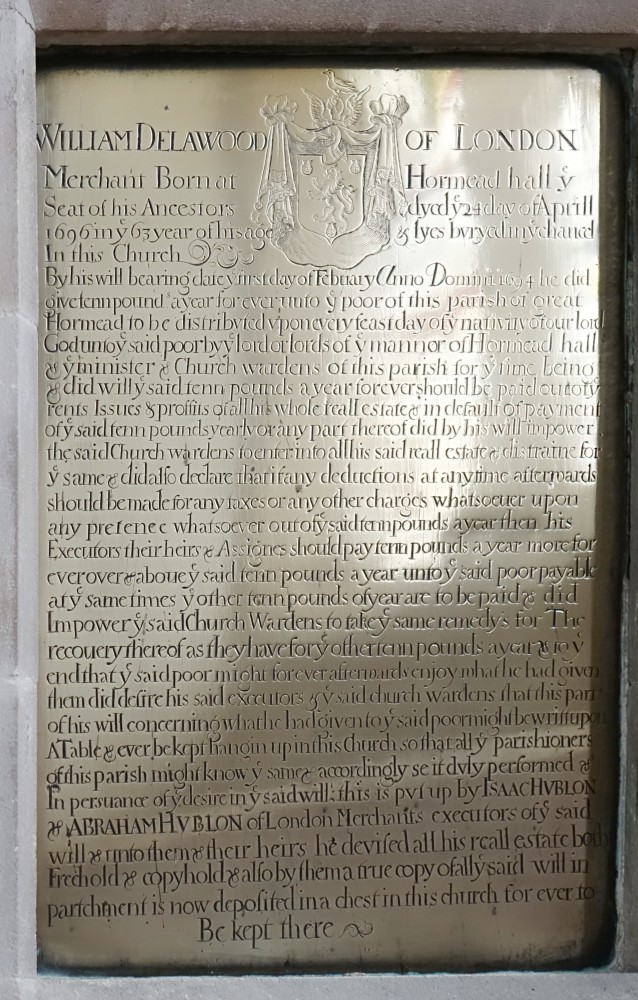 WILLIAM DELAWOOD OF LONDON
Merchant Born at Hormead hall yͤ
Seat of his Ancestors dyed yͤ 24 day of Aprill
1696 in yͤ 63 year of his age & lyes bvryed in yͤ chancel
In this Church
By his will bearing date yͤ first day of Febuary Anno Domini 1694 he did
give tenn pound a year for ever unto yͤ poor of this parish of great
Hormead to be distribvted vpon every feast day of yͤ nativity of our lord
God unto yͤ said poor by yͤ lord or lords of yͤ mannor of Hormead hall
& yͤ minister & Church wardens of this parish for yͤ time being
& did will yͤ said tenn pounds a year forever should be paid out of yͤ
rents Issues & proffits of all his whole reall estate & in default of payment
of yͤ said tenn pounds yearly or any part thereof did by his will impower
the said Church wardens to enter into all his said reall estate & distraine for
yͤ same & did also declare that if any deductions at anytime afterwards
should be made for any taxes or any other charges whatsoeuer upon
any pretence whatsoever out of yͤ said tenn pounds a year then his
Executors their heirs & Assignes should pay tenn pounds a year more for
ever over & aboue yͤ said tenn pounds a year unto yͤ said poor payable
at yͤ same times yͤ other tenn pounds of year are to be paid & did
Impower yͤ said Church Wardens to take yͤ same remedys for The
recouery thereof as they have for yͤ other tenn pounds a year & to yͤ
end that yͤ said poor might forever afterwards enjoy what he had given
them did desire his said executors & yͤ said church wardens that this part
of his will concerning what he had given to yͤ said poor might be writt upon
A Table & ever be kept hangin up in this Church so that all yͤ parishioners
of this parish might know yͤ same & accordingly se it dvly performed &
In persuance of yͤ desire in yͤ said will: this is pvt up by ISAAC HVBLON
& ABRAHAM HVBLON of London Merchants executors of yͤ said
will & unto them & their heirs he devised all his reall estate both
Frechold & copyhold & also by them a true copy of all yͤ said will in
partchment is now deposited in a chest in this church for ever to
Be kept there